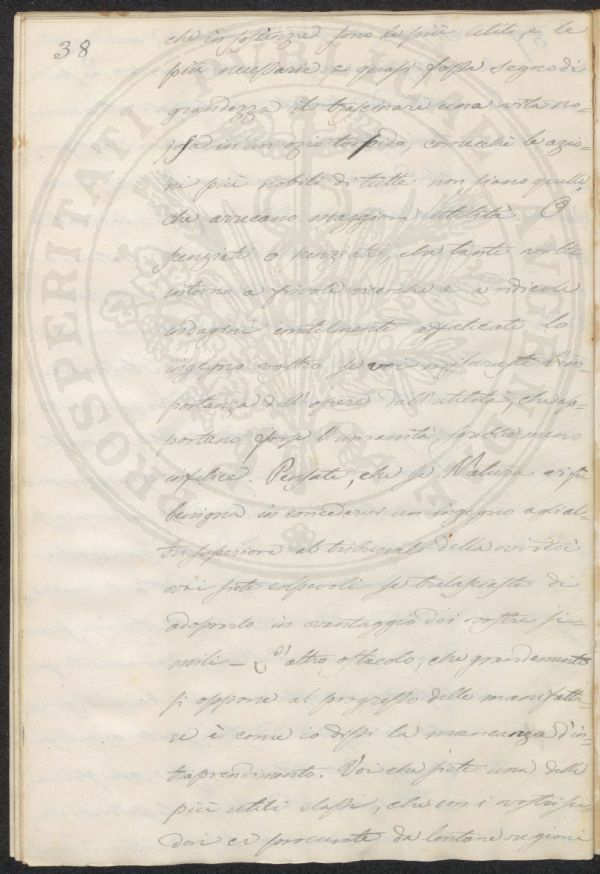 38
che in sostanza sono le più utili, e le
più necessarie e quasi fosse segno di
grandezza il trascinare una vita no=
josa in un ozio torpido, comecché le azio=
ni più nobili di tutte non siano quelle,
che arrecano maggiore utilità. O
scenziati o scenziati, che tante volte
intorno a frivole ricerche e a ridicole
indagini inutilmente affaticate lo
ingegno vostro, se voi misuraste l'im=
portanza dell'opere dall'utilità, che ap=
portano, forse l'umanità sarebbe meno
infelice. Pensate, che se Natura vi fu
benigna in concedervi un ingegno agli al=
tri superiore al tribunale della virtù
voi siete colpevoli se tralasciaste di
adoprarlo in vantaggio dei vostri si=
mili — L'altro ostacolo, che grandemente
si oppone al progresso delle manifattu
re è come io dissi la mancanza d'in=
traprendimento. Voi che siete una delle
più utili classi, che con i vostri su
dori ci procurate da lontane regioni
PROSPERITATI PUBLICAE AUGENDAE